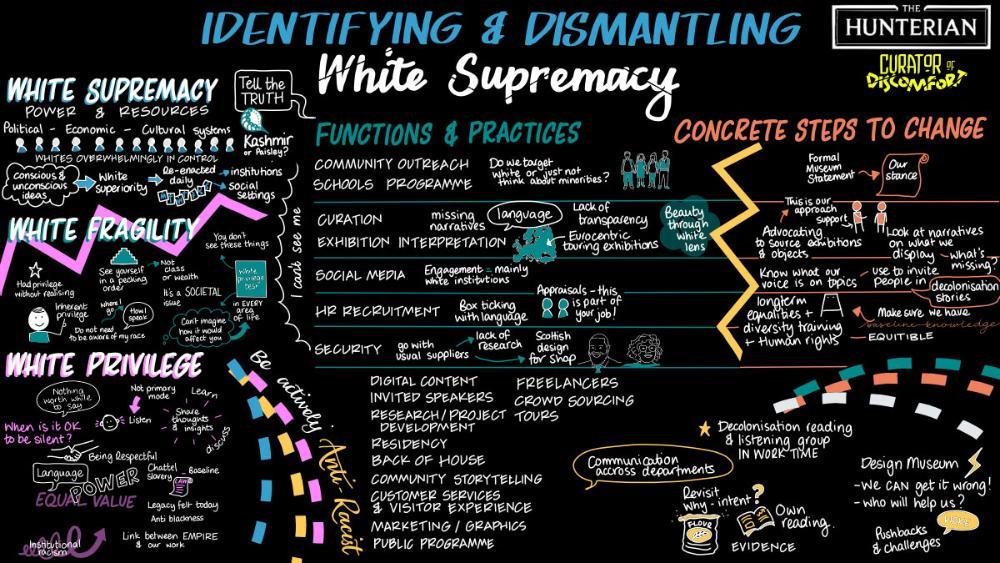 IDENTIFYING & DISMANTLING
White Supremacy
THE
HUNTERIAN
CURATOR OF
DISCOMFORT
WHITE SUPREMACY
POWER & RESOURCES
Political - Economic - Cultural systems
WHITES OVERWHELMINGLY IN CONTROL
conscious &
unconscious
ideas
White
superiority
Re-enacted
daily
institutions
social
settings
Tell the
TRUTH
Kashmir
or Paisley?
WHITE FRAGILITY
You don't
see these things
Had privilege
without realising
See yourself
in a pecking
order
Not
class
or wealth
It's a SOCIETAL
issue
White
privilege
test
in EVERY
area
of life
Inherent
privilege
where I
go
How I
speak
Do not need
to be aware of my race
Can't imagine
how it would
affect you
I can't see me
WHITE PRIVILEGE
Nothing
worth while
to say
Not primary
mode
Learn
Listen
Share
thoughts
& insights
discuss
When is it OK
to be silent?
Being Respectful
Language
POWER
EQUAL VALUE
Chattel
Slavery
Baseline
Legacy felt today
Anti blackness
Institutional
racism
Link between EMPIRE
& our work
Be actively
Anti Racist
FUNCTIONS & PRACTICES
COMMUNITY OUTREACH
SCHOOLS PROGRAMME
Do we target
white or just not
think about minorities?
CURATION
EXHIBITION INTERPRETATION
missing
narratives
language
Lack of
transparency
Eurocentric
touring exhibitions
Beauty
through
white
lens
SOCIAL MEDIA
Engagement = mainly
white institutions
HR RECRUITMENT
Box ticking
with language
Appraisals - this
is part of
your job!
SECURITY
go with
usual suppliers
lack of
research
Scottish
design
for shop
DIGITAL CONTENT
INVITED SPEAKERS
RESEARCH/PROJECT
DEVELOPMENT
RESIDENCY
BACK OF HOUSE
COMMUNITY STORYTELLING
CUSTOMER SERVICES
& VISITOR EXPERIENCE
MARKETING / GRAPHICS
PUBLIC PROGRAMME
FREELANCERS
CROWD SOURCING
TOURS
CONCRETE STEPS TO CHANGE
Formal
Museum
Statement
Our
stance
This is our
approach
support
Advocating
to source exhibitions
& objects
Look at narratives
on what we
display
what's
missing?
Know what our
voice is on topics
use to invite
people in
decolonisation
stories
longterm
equalities +
diversity training
+ Human rights
Make sure we have
baseline knowledge
EQUITIBLE
Decolonisation reading
& listening group
IN WORK TIME
Communication
accross departments
Revisit
why - intent?
FLOUR
Own
reading.
EVIDENCE
Design Museum
- WE CAN get it wrong!
- who will help us?
Pushbacks
& challenges